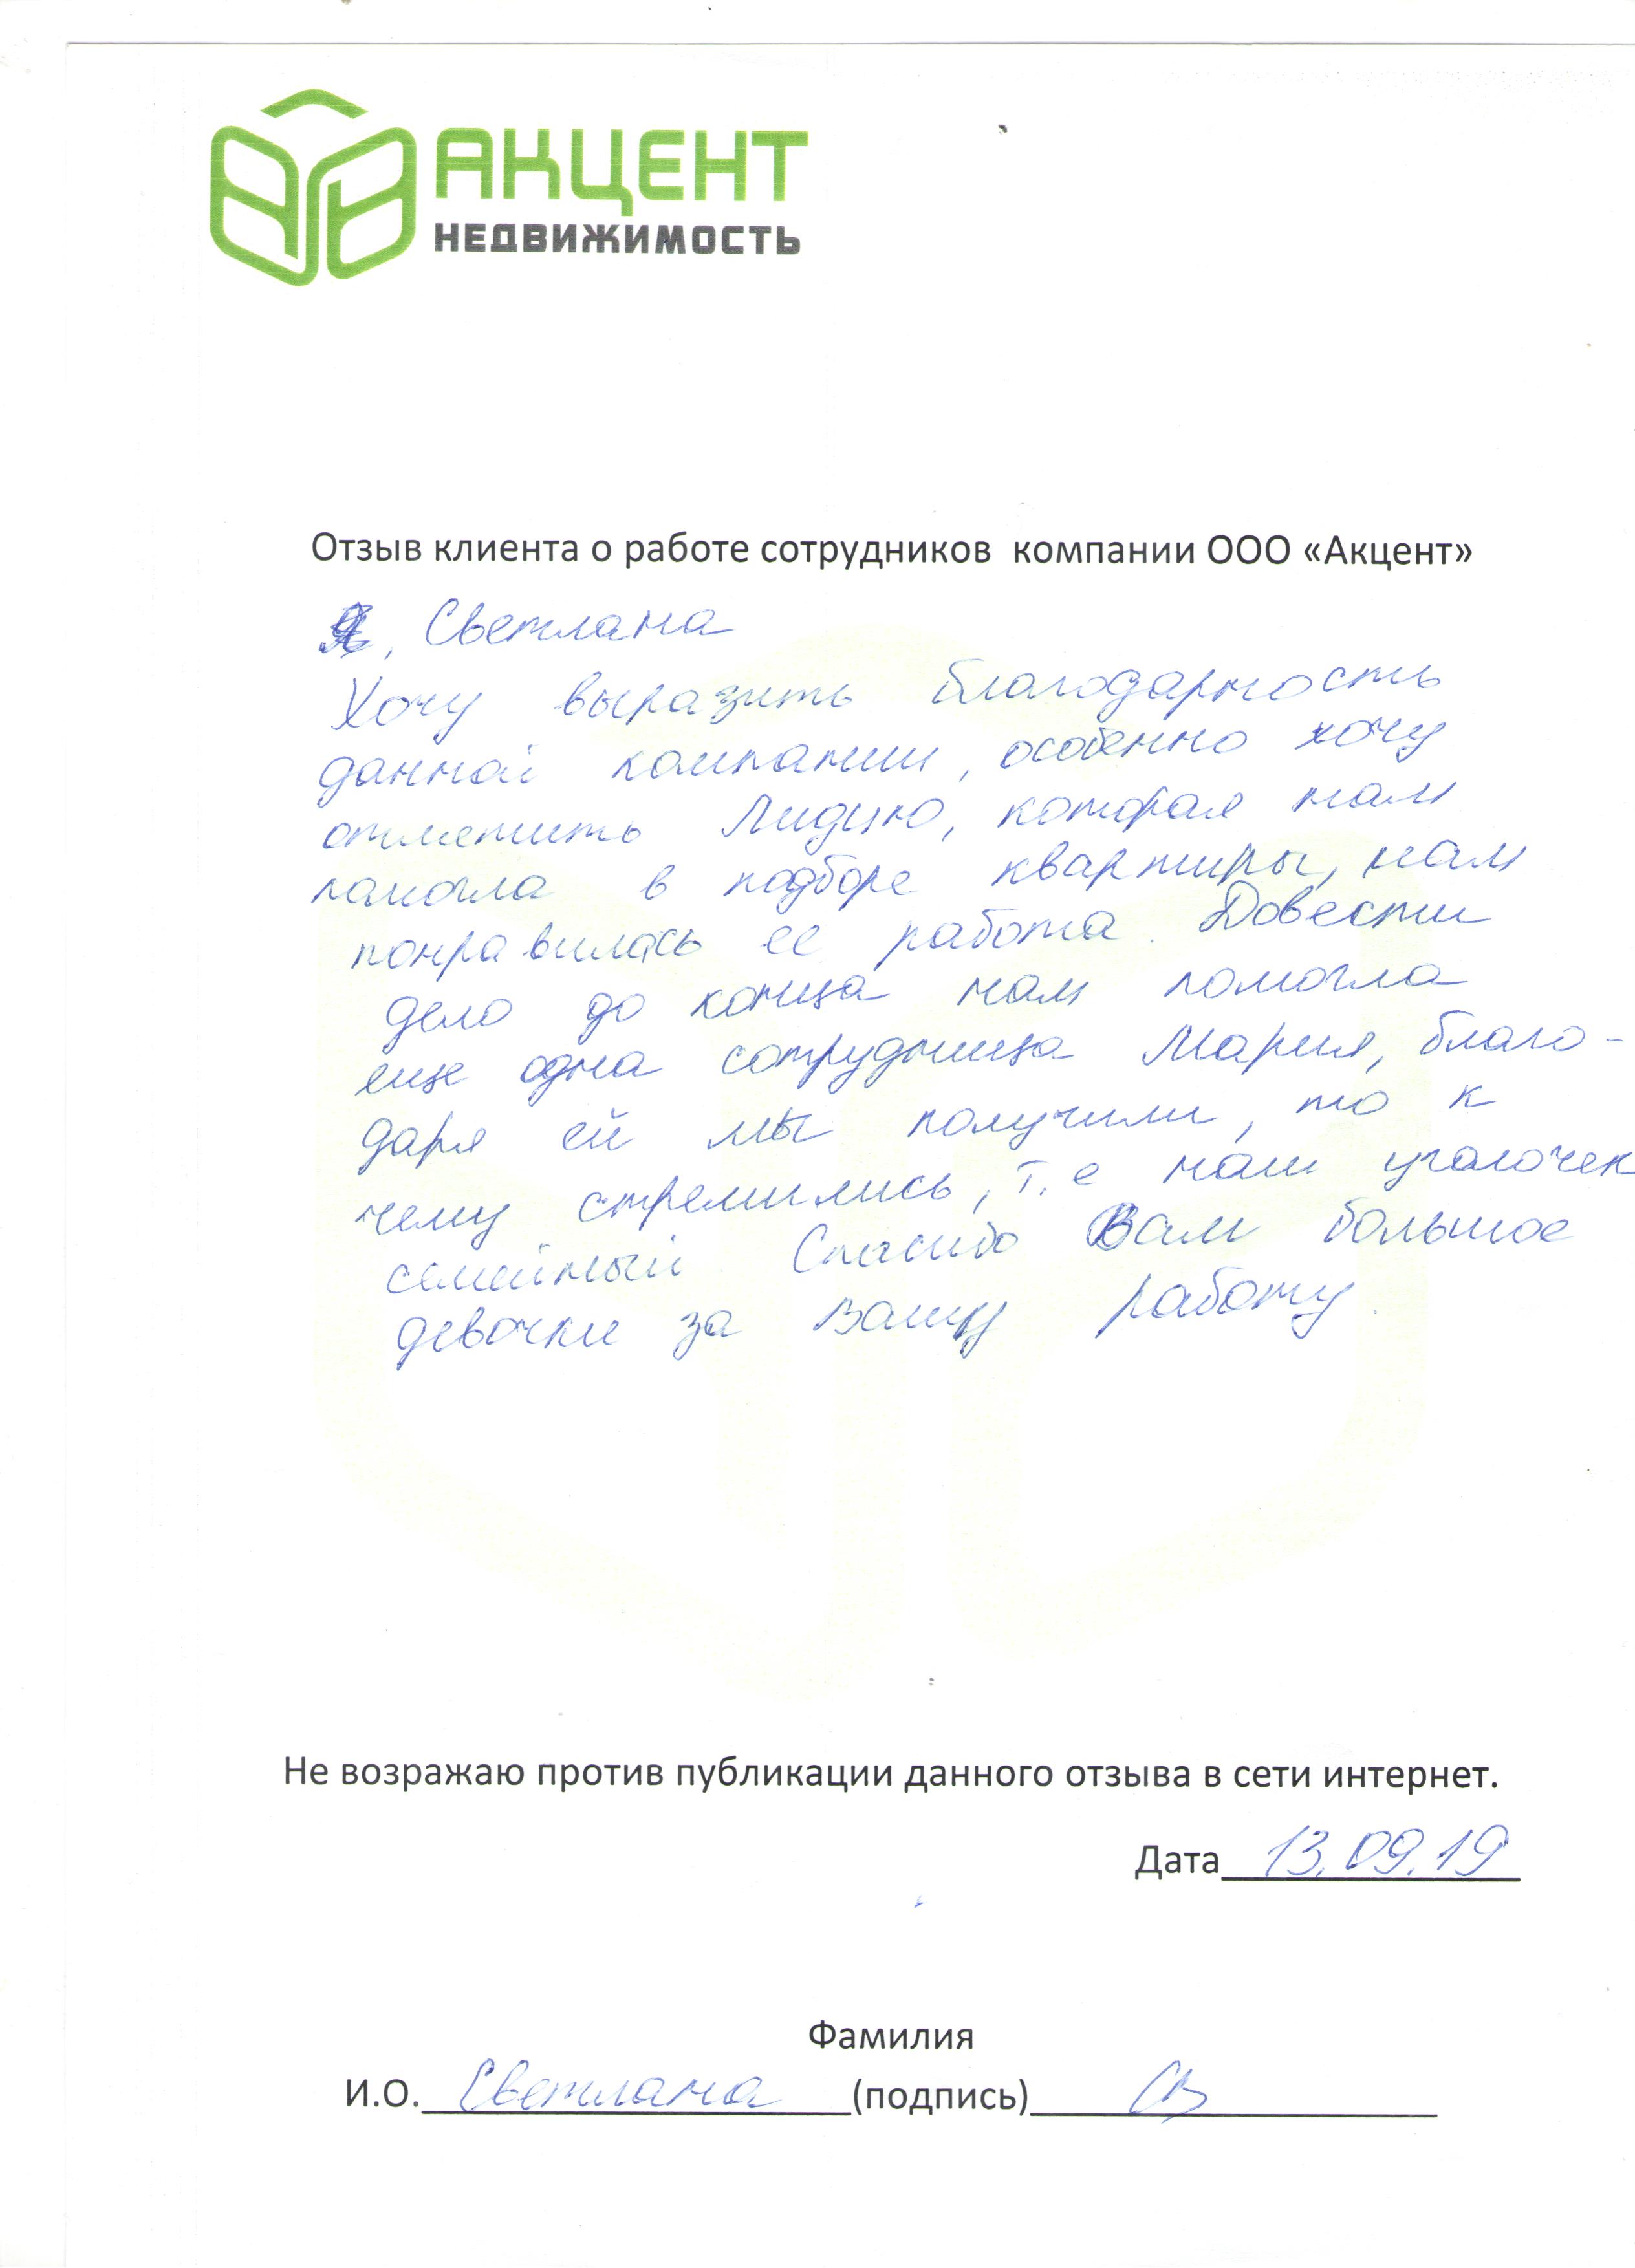 АКЦЕНТ
НЕДВИЖИМОСТЬ
Отзыв клиента о работе сотрудников компании ООО «Акцент»
Я, Светлана
Хочу выразить благодарность
данной компании, особенно хочу
отметить Лидию, которая нам
помогла в подборе квартиры, нам
понравилась ее работа. Довести
дело до конца нам помогла
еще одна сотрудница Мария, благо-
даря ей мы получили, то к
чему стремились, т.е наш уголочек
семейный. Спасибо Вам большое
девочки за Вашу работу.
Не возражаю против публикации данного отзыва в сети интернет.
Дата 13.09.19
Фамилия
И.О. Светлана (подпись) Св